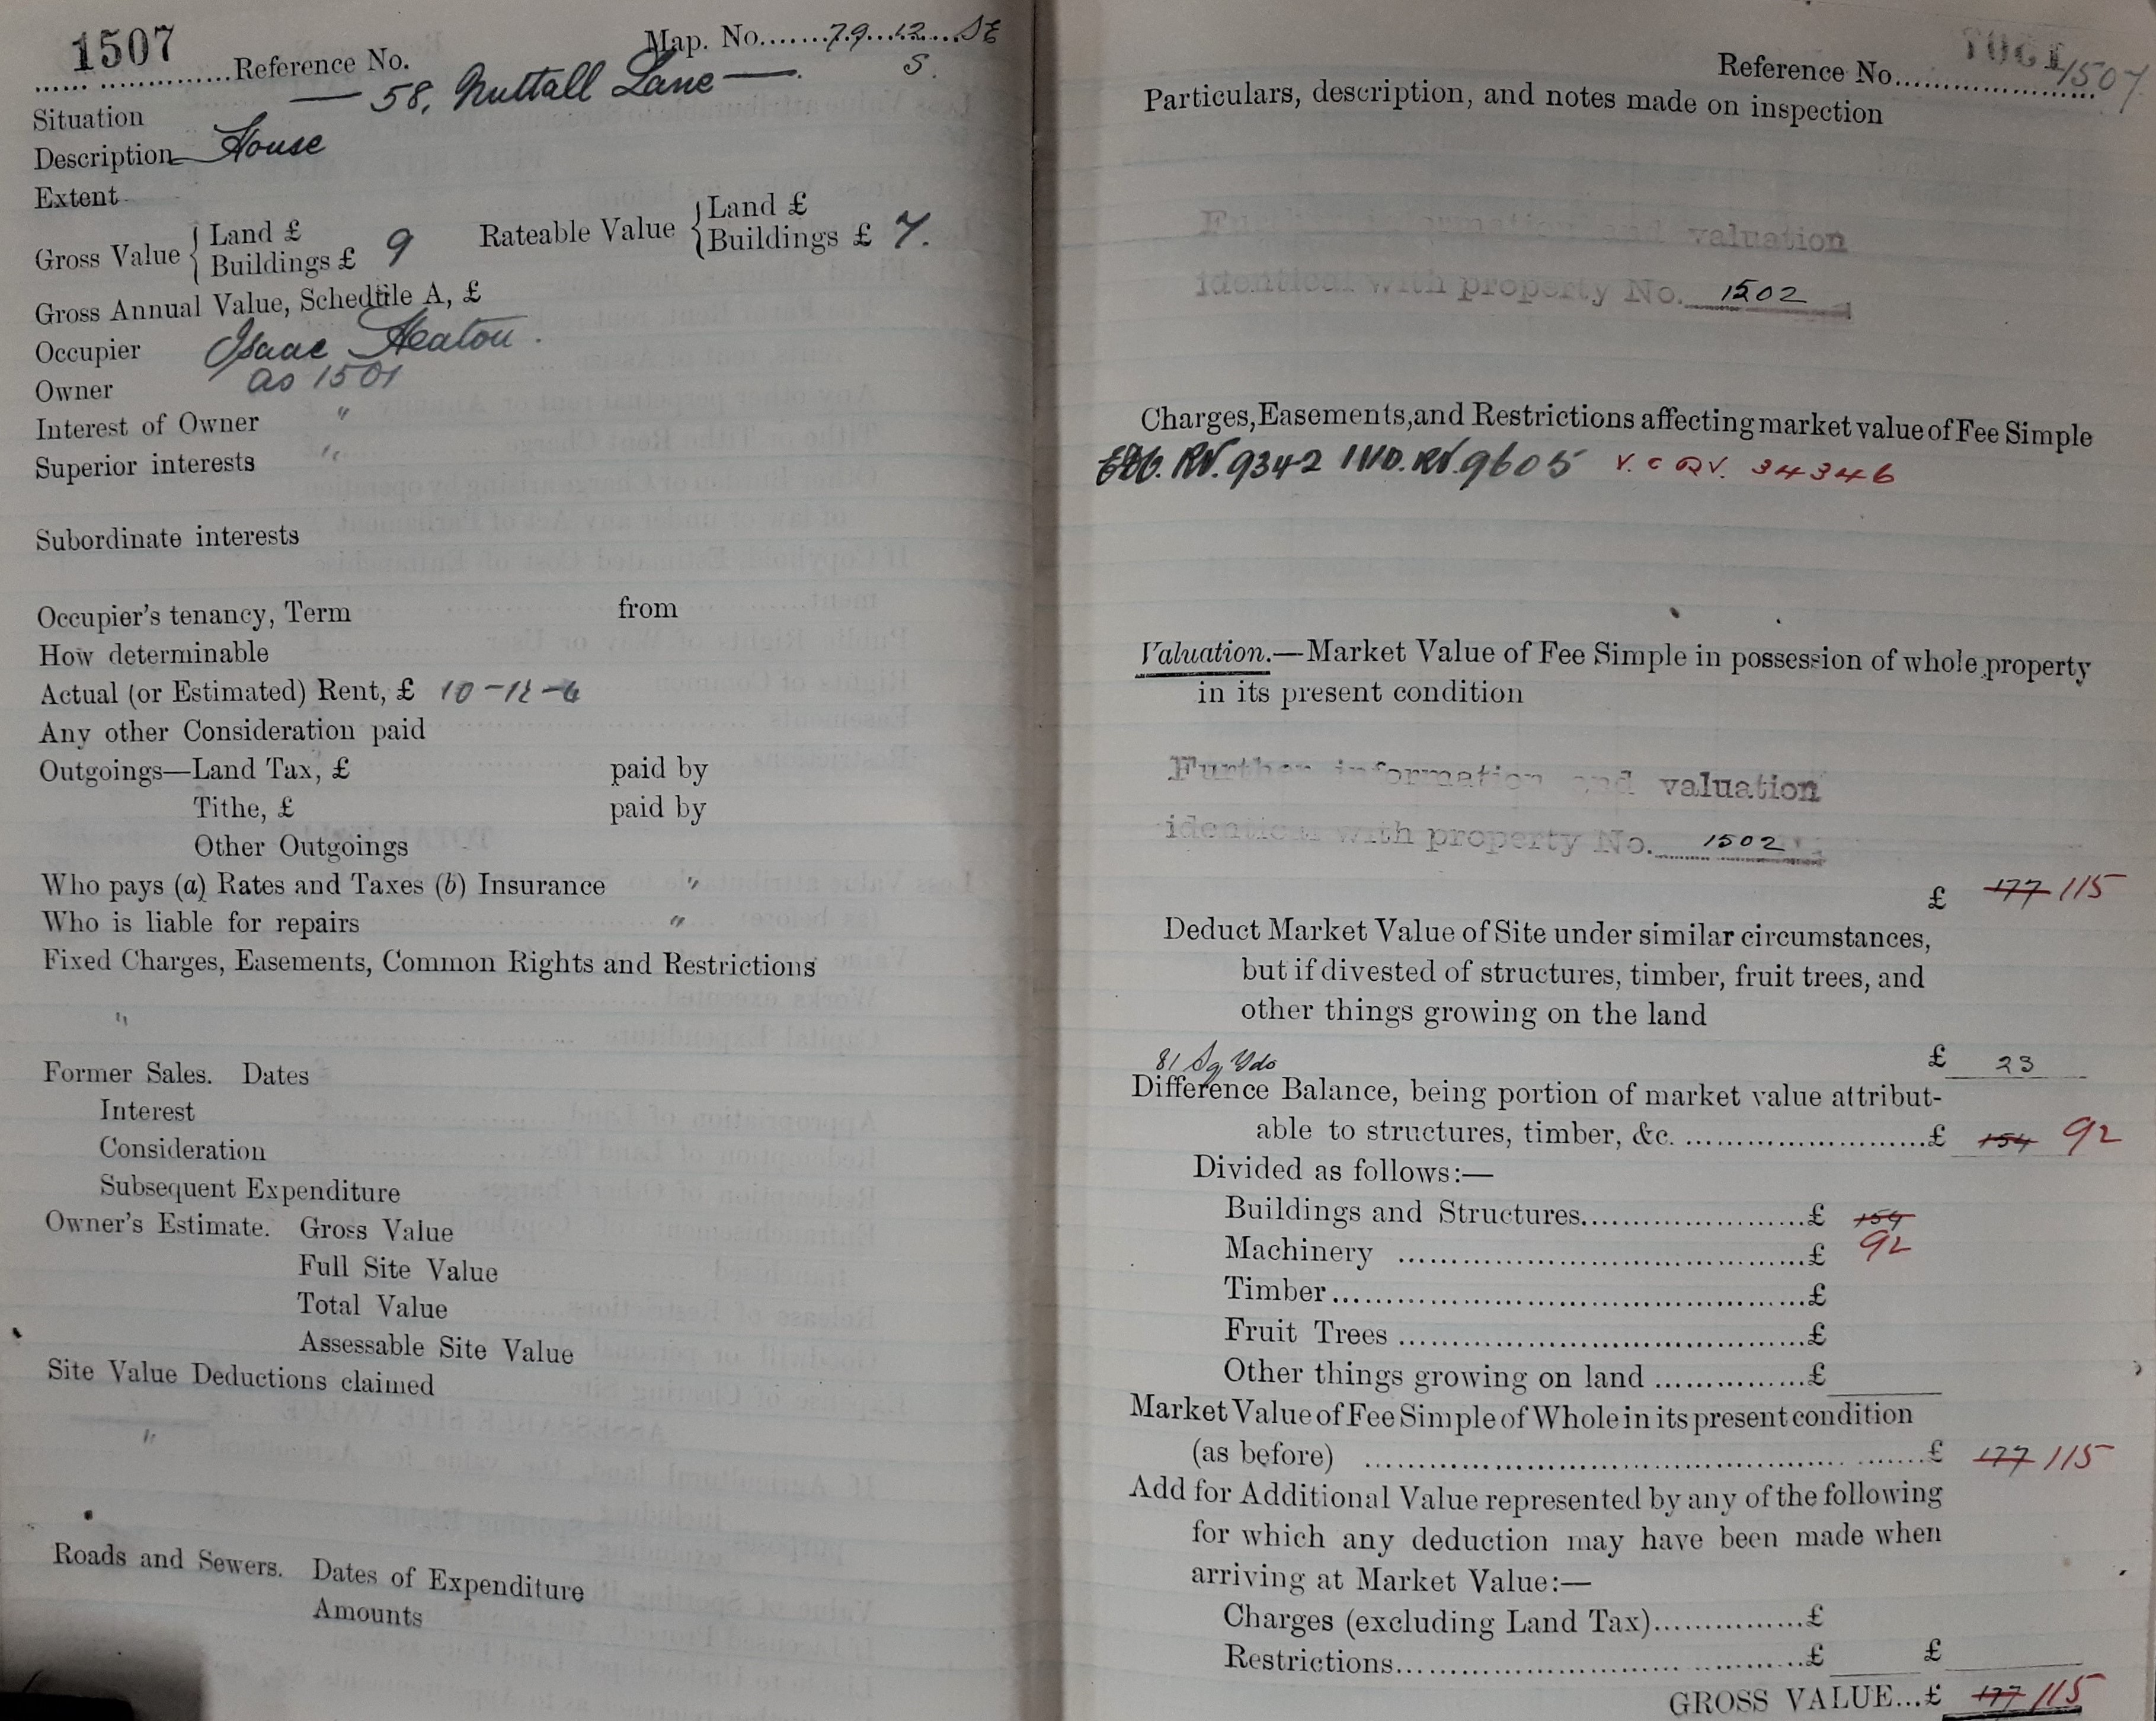 1507 Reference No. Map. No. 79.12. SE
S.
Situation — 58, Nuttall Lane —.
Description House
Extent
Gross Value { Land £
Buildings £ 9
Rateable Value { Land £
Buildings £ 7.
Gross Annual Value, Schedule A, £
Occupier Isaac Heaton.
Owner as 1501
Interest of Owner "
Superior interests "
Subordinate interests
Occupier's tenancy, Term from
How determinable
Actual (or Estimated) Rent, £ 10-12-
Any other Consideration paid
Outgoings—Land Tax, £ paid by
Tithe, £ paid by
Other Outgoings
Who pays (a) Rates and Taxes (b) Insurance "
Who is liable for repairs "
Fixed Charges, Easements, Common Rights and Restrictions
"
Former Sales. Dates
Interest
Consideration
Subsequent Expenditure
Owner's Estimate. Gross Value
Full Site Value
Total Value
Assessable Site Value
Site Value Deductions claimed
"
Roads and Sewers. Dates of Expenditure
Amounts
Reference No. 1507
Particulars, description, and notes made on inspection
Further information and valuation
identical with property No. 1502
Charges, Easements, and Restrictions affecting market value of Fee Simple
RV. 9342 IND. RV. 9605 V. C RV. 34346
Valuation.—Market Value of Fee Simple in possession of whole property
in its present condition
Further information and valuation
identical with property No. 1502
£ 177 115
Deduct Market Value of Site under similar circumstances,
but if divested of structures, timber, fruit trees, and
other things growing on the land
81 Sq Yds £ 23
Difference Balance, being portion of market value attribut-
able to structures, timber, &c. £ 154 92
Divided as follows:—
Buildings and Structures £ 154
92
Machinery £
Timber £
Fruit Trees £
Other things growing on land £
Market Value of Fee Simple of Whole in its present condition
(as before) £ 177 115
Add for Additional Value represented by any of the following
for which any deduction may have been made when
arriving at Market Value:—
Charges (excluding Land Tax) £
Restrictions £ £
GROSS VALUE...£ 177 115